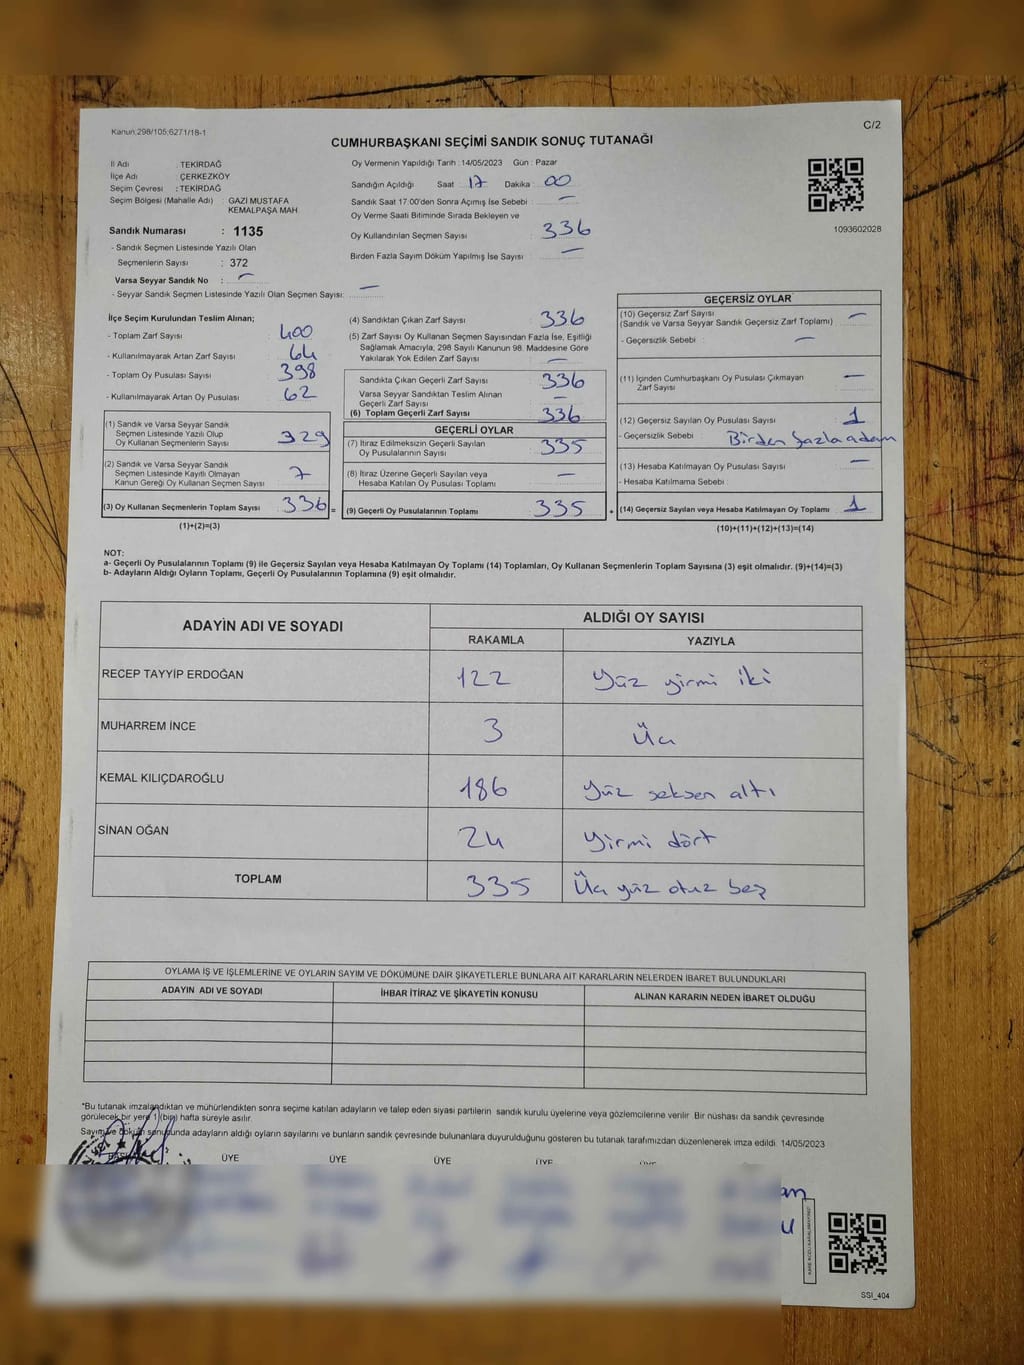 Kanun:298/105;6271/18-1
C/2
CUMHURBAŞKANI SEÇİMİ SANDIK SONUÇ TUTANAĞI
İl Adı : TEKİRDAĞ
İlçe Adı : ÇERKEZKÖY
Seçim Çevresi : TEKİRDAĞ
Seçim Bölgesi (Mahalle Adı) : GAZİ MUSTAFA
KEMALPAŞA MAH
Sandık Numarası : 1135
- Sandık Seçmen Listesinde Yazılı Olan
Seçmenlerin Sayısı : 372
Varsa Seyyar Sandık No : –
- Seyyar Sandık Seçmen Listesinde Yazılı Olan Seçmen Sayısı: –
Oy Vermenin Yapıldığı Tarih : 14/05/2023 Gün : Pazar
Sandığın Açıldığı Saat 17 Dakika : 00
Sandık Saat 17:00'den Sonra Açımış İse Sebebi : –
Oy Verme Saati Bitiminde Sırada Bekleyen ve
Oy Kullandırılan Seçmen Sayısı : 336
Birden Fazla Sayım Döküm Yapılmış İse Sayısı : –
1093602028
İlçe Seçim Kurulundan Teslim Alınan;
- Toplam Zarf Sayısı : 400
- Kullanılmayarak Artan Zarf Sayısı : 64
- Toplam Oy Pusulası Sayısı : 398
- Kullanılmayarak Artan Oy Pusulası : 62
(1) Sandık ve Varsa Seyyar Sandık
Seçmen Listesinde Yazılı Olup
Oy Kullanan Seçmenlerin Sayısı : 329
(2) Sandık ve Varsa Seyyar Sandık
Seçmen Listesinde Kayıtlı Olmayan
Kanun Gereği Oy Kullanan Seçmen Sayısı : 7
(3) Oy Kullanan Seçmenlerin Toplam Sayısı : 336 =
(1)+(2)=(3)
(4) Sandıktan Çıkan Zarf Sayısı : 336
(5) Zarf Sayısı Oy Kullanan Seçmen Sayısından Fazla İse, Eşitliği
Sağlamak Amacıyla, 298 Sayılı Kanunun 98. Maddesine Göre
Yakılarak Yok Edilen Zarf Sayısı : –
Sandıkta Çıkan Geçerli Zarf Sayısı : 336
Varsa Seyyar Sandıktan Teslim Alınan
Geçerli Zarf Sayısı : –
(6) Toplam Geçerli Zarf Sayısı : 336
GEÇERLİ OYLAR
(7) İtiraz Edilmeksizin Geçerli Sayılan
Oy Pusulalarının Sayısı : 335
(8) İtiraz Üzerine Geçerli Sayılan veya
Hesaba Katılan Oy Pusulası Toplamı : –
(9) Geçerli Oy Pusulalarının Toplamı : 335 +
GEÇERSİZ OYLAR
(10) Geçersiz Zarf Sayısı
(Sandık ve Varsa Seyyar Sandık Geçersiz Zarf Toplamı) : –
- Geçersizlik Sebebi : –
(11) İçinden Cumhurbaşkanı Oy Pusulası Çıkmayan
Zarf Sayısı : –
(12) Geçersiz Sayılan Oy Pusulası Sayısı : 1
- Geçersizlik Sebebi : Birden fazla adam
(13) Hesaba Katılmayan Oy Pusulası Sayısı : –
- Hesaba Katılmama Sebebi :
(14) Geçersiz Sayılan veya Hesaba Katılmayan Oy Toplamı : 1
(10)+(11)+(12)+(13)=(14)
NOT:
a- Geçerli Oy Pusulalarının Toplamı (9) ile Geçersiz Sayılan veya Hesaba Katılmayan Oy Toplamı (14) Toplamları, Oy Kullanan Seçmenlerin Toplam Sayısına (3) eşit olmalıdır. (9)+(14)=(3)
b- Adayların Aldığı Oyların Toplamı, Geçerli Oy Pusulalarının Toplamına (9) eşit olmalıdır.
ADAYIN ADI VE SOYADI
ALDIĞI OY SAYISI
RAKAMLA YAZIYLA
RECEP TAYYİP ERDOĞAN 122 Yüz yirmi iki
MUHARREM İNCE 3 Üç
KEMAL KILIÇDAROĞLU 186 Yüz seksen altı
SİNAN OĞAN 24 Yirmi dört
TOPLAM 335 Üç yüz otuz beş
OYLAMA İŞ VE İŞLEMLERİNE VE OYLARIN SAYIM VE DÖKÜMÜNE DAİR ŞİKAYETLERLE BUNLARA AİT KARARLARIN NELERDEN İBARET BULUNDUKLARI
ADAYIN ADI VE SOYADI İHBAR İTİRAZ VE ŞİKAYETİN KONUSU ALINAN KARARIN NEDEN İBARET OLDUĞU
*Bu tutanak imzalandıktan ve mühürlendikten sonra seçime katılan adayların ve talep eden siyasi partilerin sandık kurulu üyelerine veya gözlemcilerine verilir. Bir nüshası da sandık çevresinde
görülecek bir yere 1 (bir) hafta süreyle asılır.
Sayım ve döküm sonucunda adayların aldığı oyların sayılarını ve bunların sandık çevresinde bulunanlara duyurulduğunu gösteren bu tutanak tarafımızdan düzenlenerek imza edildi. 14/05/2023
ÜYE ÜYE ÜYE ÜYE
SSİ_404